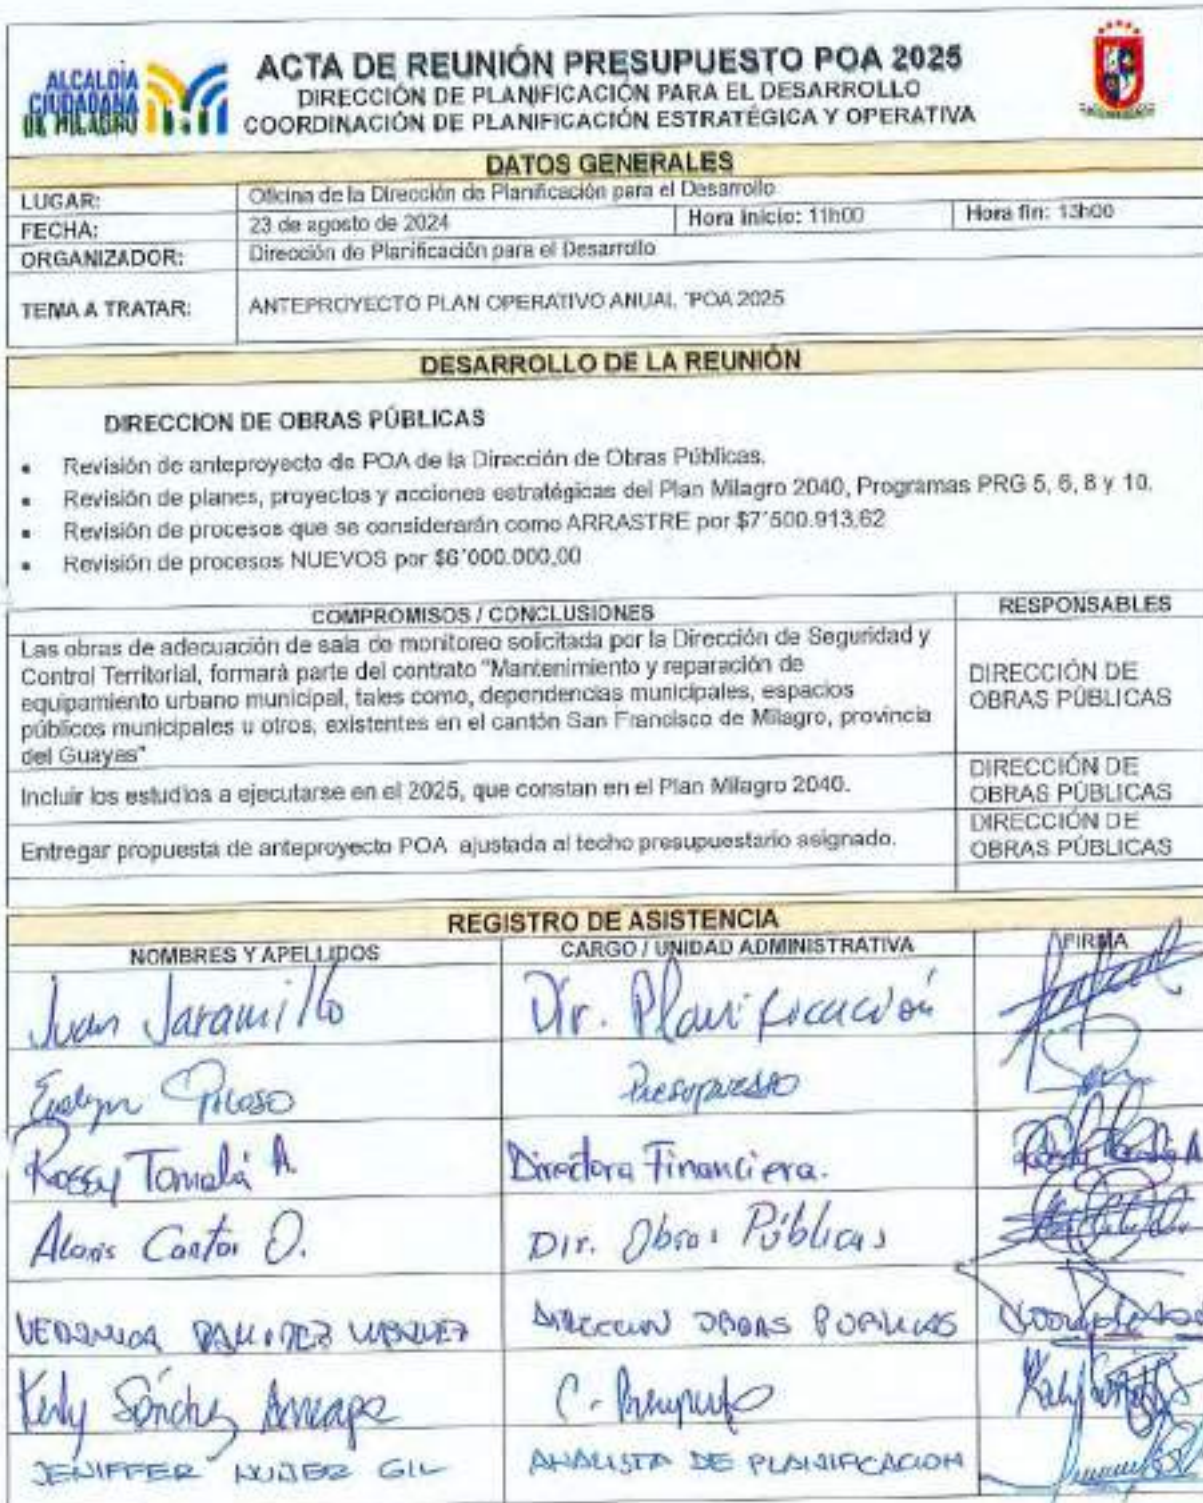 ALCALDÍA
CIUDADANA
DE MILAGRO
ACTA DE REUNIÓN PRESUPUESTO POA 2025
DIRECCIÓN DE PLANIFICACIÓN PARA EL DESARROLLO
COORDINACIÓN DE PLANIFICACIÓN ESTRATÉGICA Y OPERATIVA
DATOS GENERALES
LUGAR: Oficina de la Dirección de Planificación para el Desarrollo
FECHA: 23 de agosto de 2024 Hora inicio: 11h00 Hora fin: 13h00
ORGANIZADOR: Dirección de Planificación para el Desarrollo
TEMA A TRATAR: ANTEPROYECTO PLAN OPERATIVO ANUAL "POA 2025
DESARROLLO DE LA REUNIÓN
DIRECCION DE OBRAS PÚBLICAS
• Revisión de anteproyecto de POA de la Dirección de Obras Públicas.
• Revisión de planes, proyectos y acciones estratégicas del Plan Milagro 2040, Programas PRG 5, 6, 8 y 10.
• Revisión de procesos que se considerarán como ARRASTRE por $7´500.913,62
• Revisión de procesos NUEVOS por $6´000.000,00
COMPROMISOS / CONCLUSIONES RESPONSABLES
Las obras de adecuación de sala de monitoreo solicitada por la Dirección de Seguridad y
Control Territorial, formará parte del contrato "Mantenimiento y reparación de
equipamiento urbano municipal, tales como, dependencias municipales, espacios
públicos municipales u otros, existentes en el cantón San Francisco de Milagro, provincia
del Guayas"
DIRECCIÓN DE
OBRAS PÚBLICAS
Incluir los estudios a ejecutarse en el 2025, que constan en el Plan Milagro 2040.
DIRECCIÓN DE
OBRAS PÚBLICAS
Entregar propuesta de anteproyecto POA ajustada al techo presupuestario asignado.
DIRECCIÓN DE
OBRAS PÚBLICAS
REGISTRO DE ASISTENCIA
NOMBRES Y APELLIDOS CARGO / UNIDAD ADMINISTRATIVA FIRMA
Juan Jaramillo Dir. Planificación
Evelyn Presupuesto
Rossy Tomalá A. Directora Financiera.
Cantos O. Dir. Obras Públicas
VERONICA RAMIREZ DIRECCION OBRAS PUBLICAS
Kerly Sánchez C. Presupuesto
JENIFFER NUÑEZ GIL ANALISTA DE PLANIFICACION